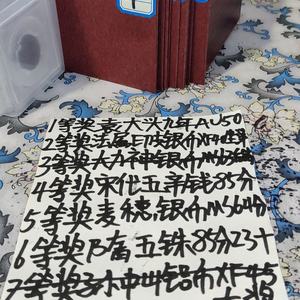 1等奖袁大头九年AU50
2等奖法属印度银币XF
3等奖大力神银币MS
4等奖宋代五字钱85分
5等奖麦穗银币MS64分
6等奖乃斋五铢85分23十
7等奖孙中山铝币XF45